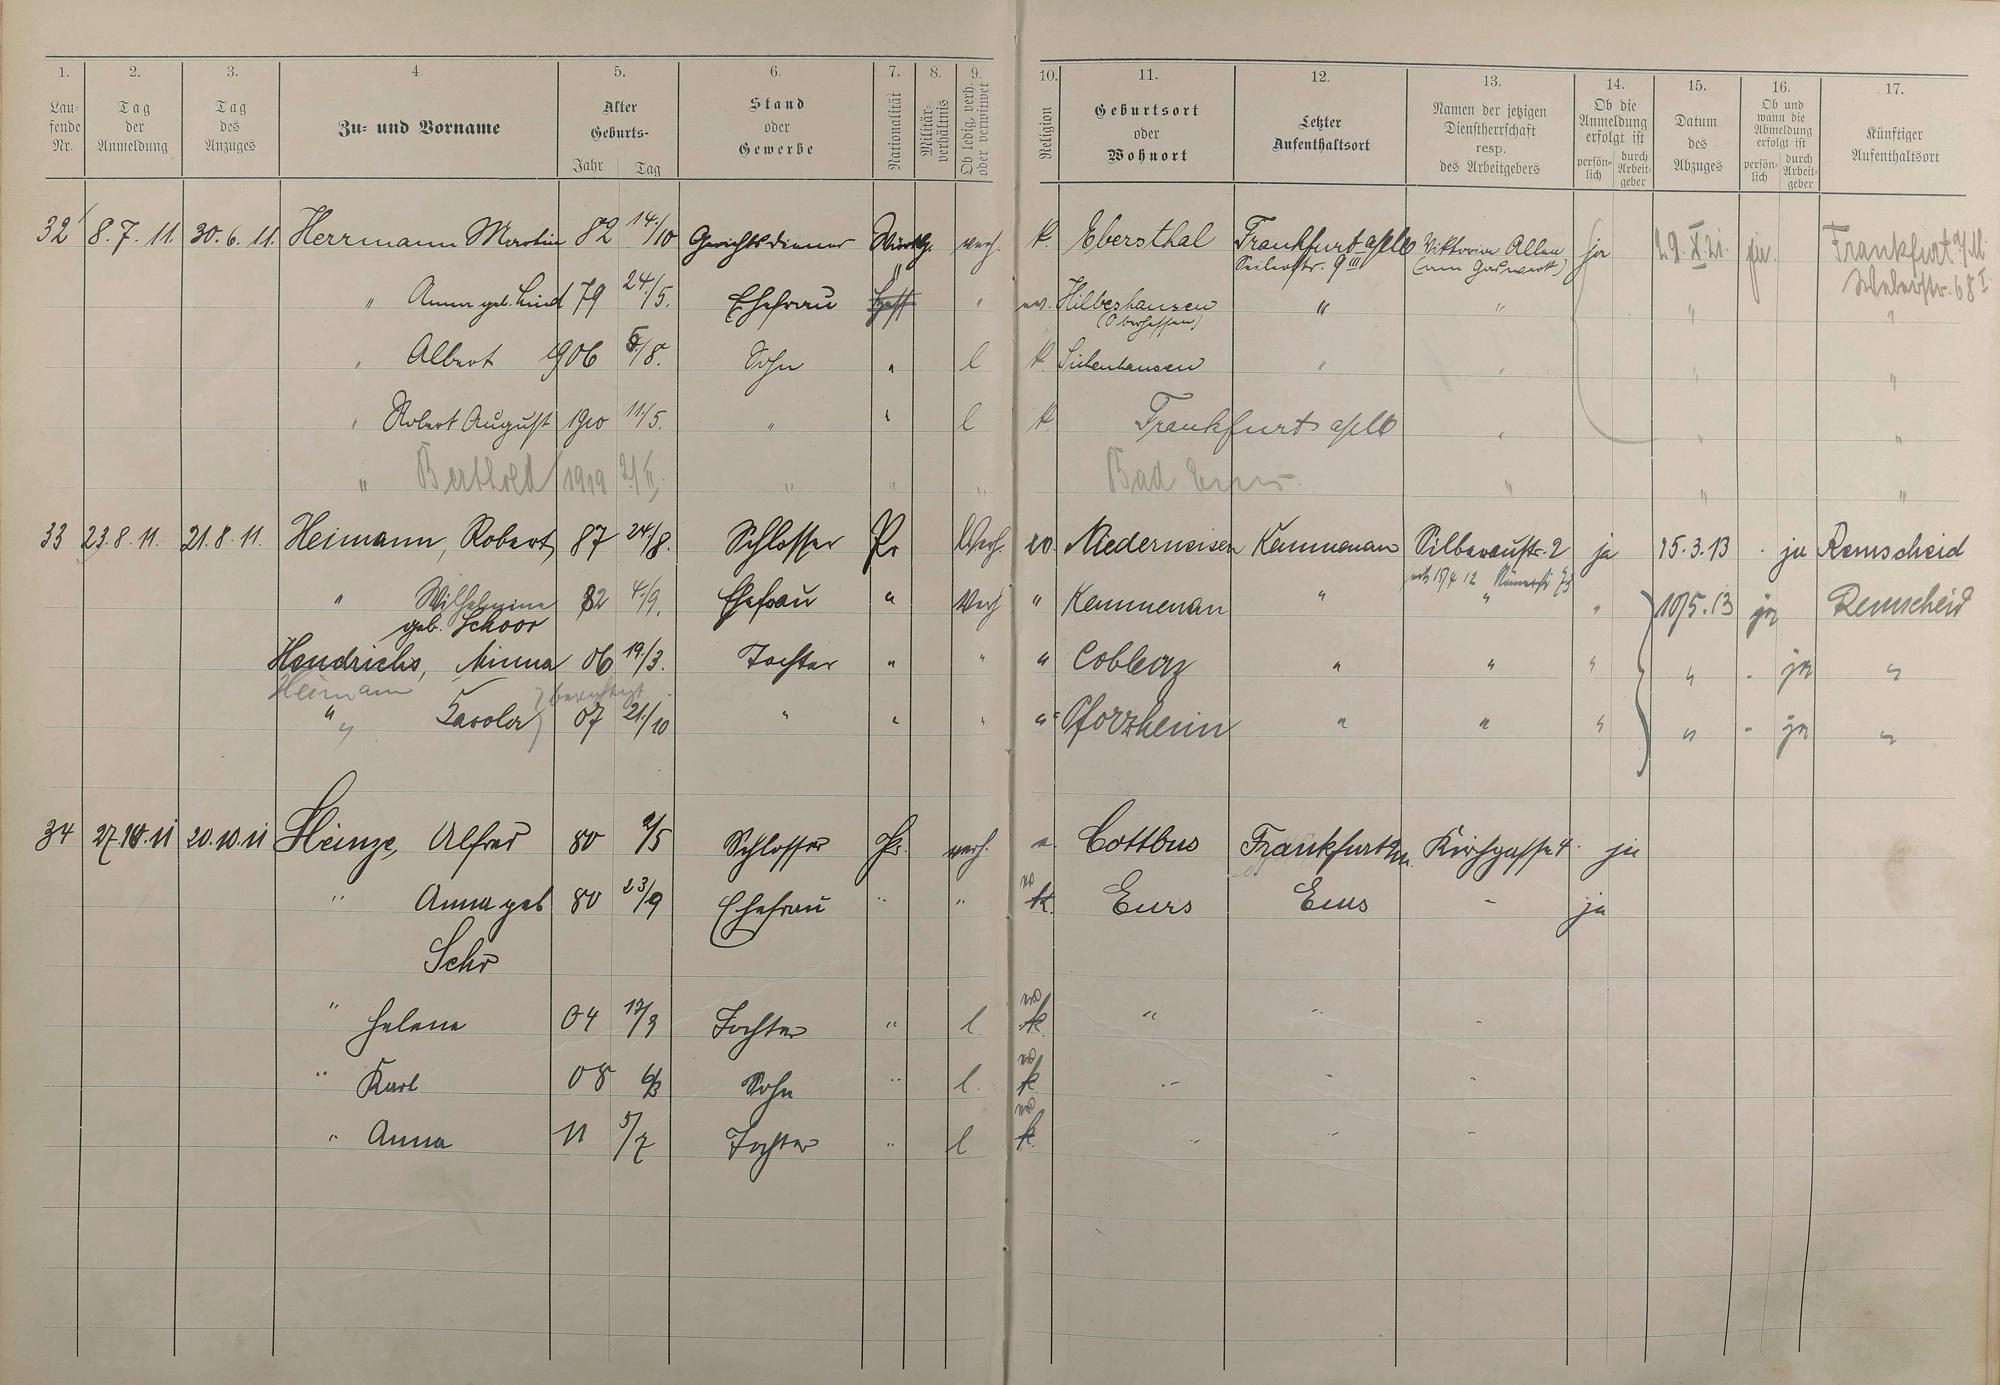 1. 2. 3. 4. 5. 6. 7. 8. 9. 10. 11. 12. 13. 14. 15. 16. 17.
Lau-fende Nr. Tag der Anmeldung Tag des Anzuges Zu- und Vorname Alter Geburts- Jahr Tag Stand oder Gewerbe Nationalität Militär-verhältnis Ob ledig, verh. oder verwitwet Religion Geburtsort oder Wohnort Letzter Aufenthaltsort Namen der jetzigen Dienstherrschaft resp. des Arbeitgebers Ob die Anmeldung erfolgt ist persön-lich durch Arbeit-geber Datum des Abzuges Ob und wann die Abmeldung erfolgt ist persön-lich durch Arbeit-geber Künftiger Aufenthaltsort
32 8. 7. 11. 30. 6. 11. Herrmann Martin 82 14./10 Gerichtsdiener Württg. verh. k. Ebersthal Frankfurt a/M Viktoria Allee ja 29. X. 21. ja. Frankfurt a/M.
Seilerstr. 9 III (am Gaswerk) Weberstr. 68 I.
" Anna geb. Lind 79 24./5. Ehefrau " " ev. " " " "
(Oberhessen)
" Albert 1906 5./8. Sohn " l k. " " " "
" Robert August 1910 11./5. " " l k. Frankfurt a/M " " "
" Berthold 1919 21/II. " " " Bad Ems. " " "
33 23. 8. 11. 21. 8. 11. Heimann, Robert 87 24./8. Schlosser Pr Verh. ev. Niederneisen Kemmenau Silberaustr. 2 ja 15. 3. 13 - ja Remscheid
" Wilhelmine 82 4./9. Ehefrau " Verh " Kemmenau " " " 10/5. 13 ja Remscheid
geb. Schoor
Hendrichs, Minna 06 19./3. Tochter " " " Coblenz " " " " - ja "
Heimann berichtigt
" " Karola 07 21./10 " " " " Pforzheim " " " " - ja "
34 27. 10. 11 20. 10. 11 Heinze, Alfred 80 2/5 Schlosser Pr. verh. e. Cottbus Frankfurt a.M. Kirchgasse 4. ja
" Anna geb 80 23/9 Ehefrau " " ev k. Ems Ems - ja
Sehr
" Helene 04 17/3 Tochter " l. ev k. " " -
" Karl 08 6/3 Sohn " l. ev k " " -
" Anna 11 5/7 Tochter " l ev k. " " -